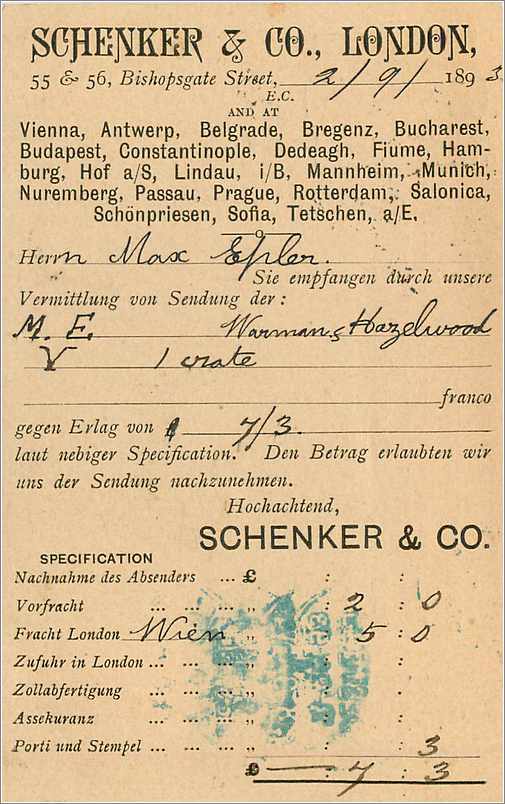 SCHENKER & CO., LONDON,
55 & 56, Bishopsgate Street, 2/9/ 1893.
E.C.
AND AT
Vienna, Antwerp, Belgrade, Bregenz, Bucharest,
Budapest, Constantinople, Dedeagh, Fiume, Ham-
burg, Hof a/S, Lindau, i/B, Mannheim, Munich,
Nuremberg, Passau, Prague, Rotterdam, Salonica,
Schönpriesen, Sofia, Tetschen, a/E.
Herrn Max Epler.
Sie empfangen durch unsere
Vermittlung von Sendung der:
M. E. Warman & Hazelwood
V 1 crate
franco
gegen Erlag von £ 7/3.
laut nebiger Specification. Den Betrag erlaubten wir
uns der Sendung nachzunehmen.
Hochachtend,
SCHENKER & CO.
SPECIFICATION
Nachnahme des Absenders ... £ : :
Vorfracht ... ... ... „ : 2 : 0
Fracht London Wien „ : 5 : 0
Zufuhr in London ... ... ... „ : :
Zollabfertigung ... ... ... „ : :
Assekuranz ... ... ... „ : :
Porti und Stempel ... ... ... „ : : 3
£ — : 7 : 3